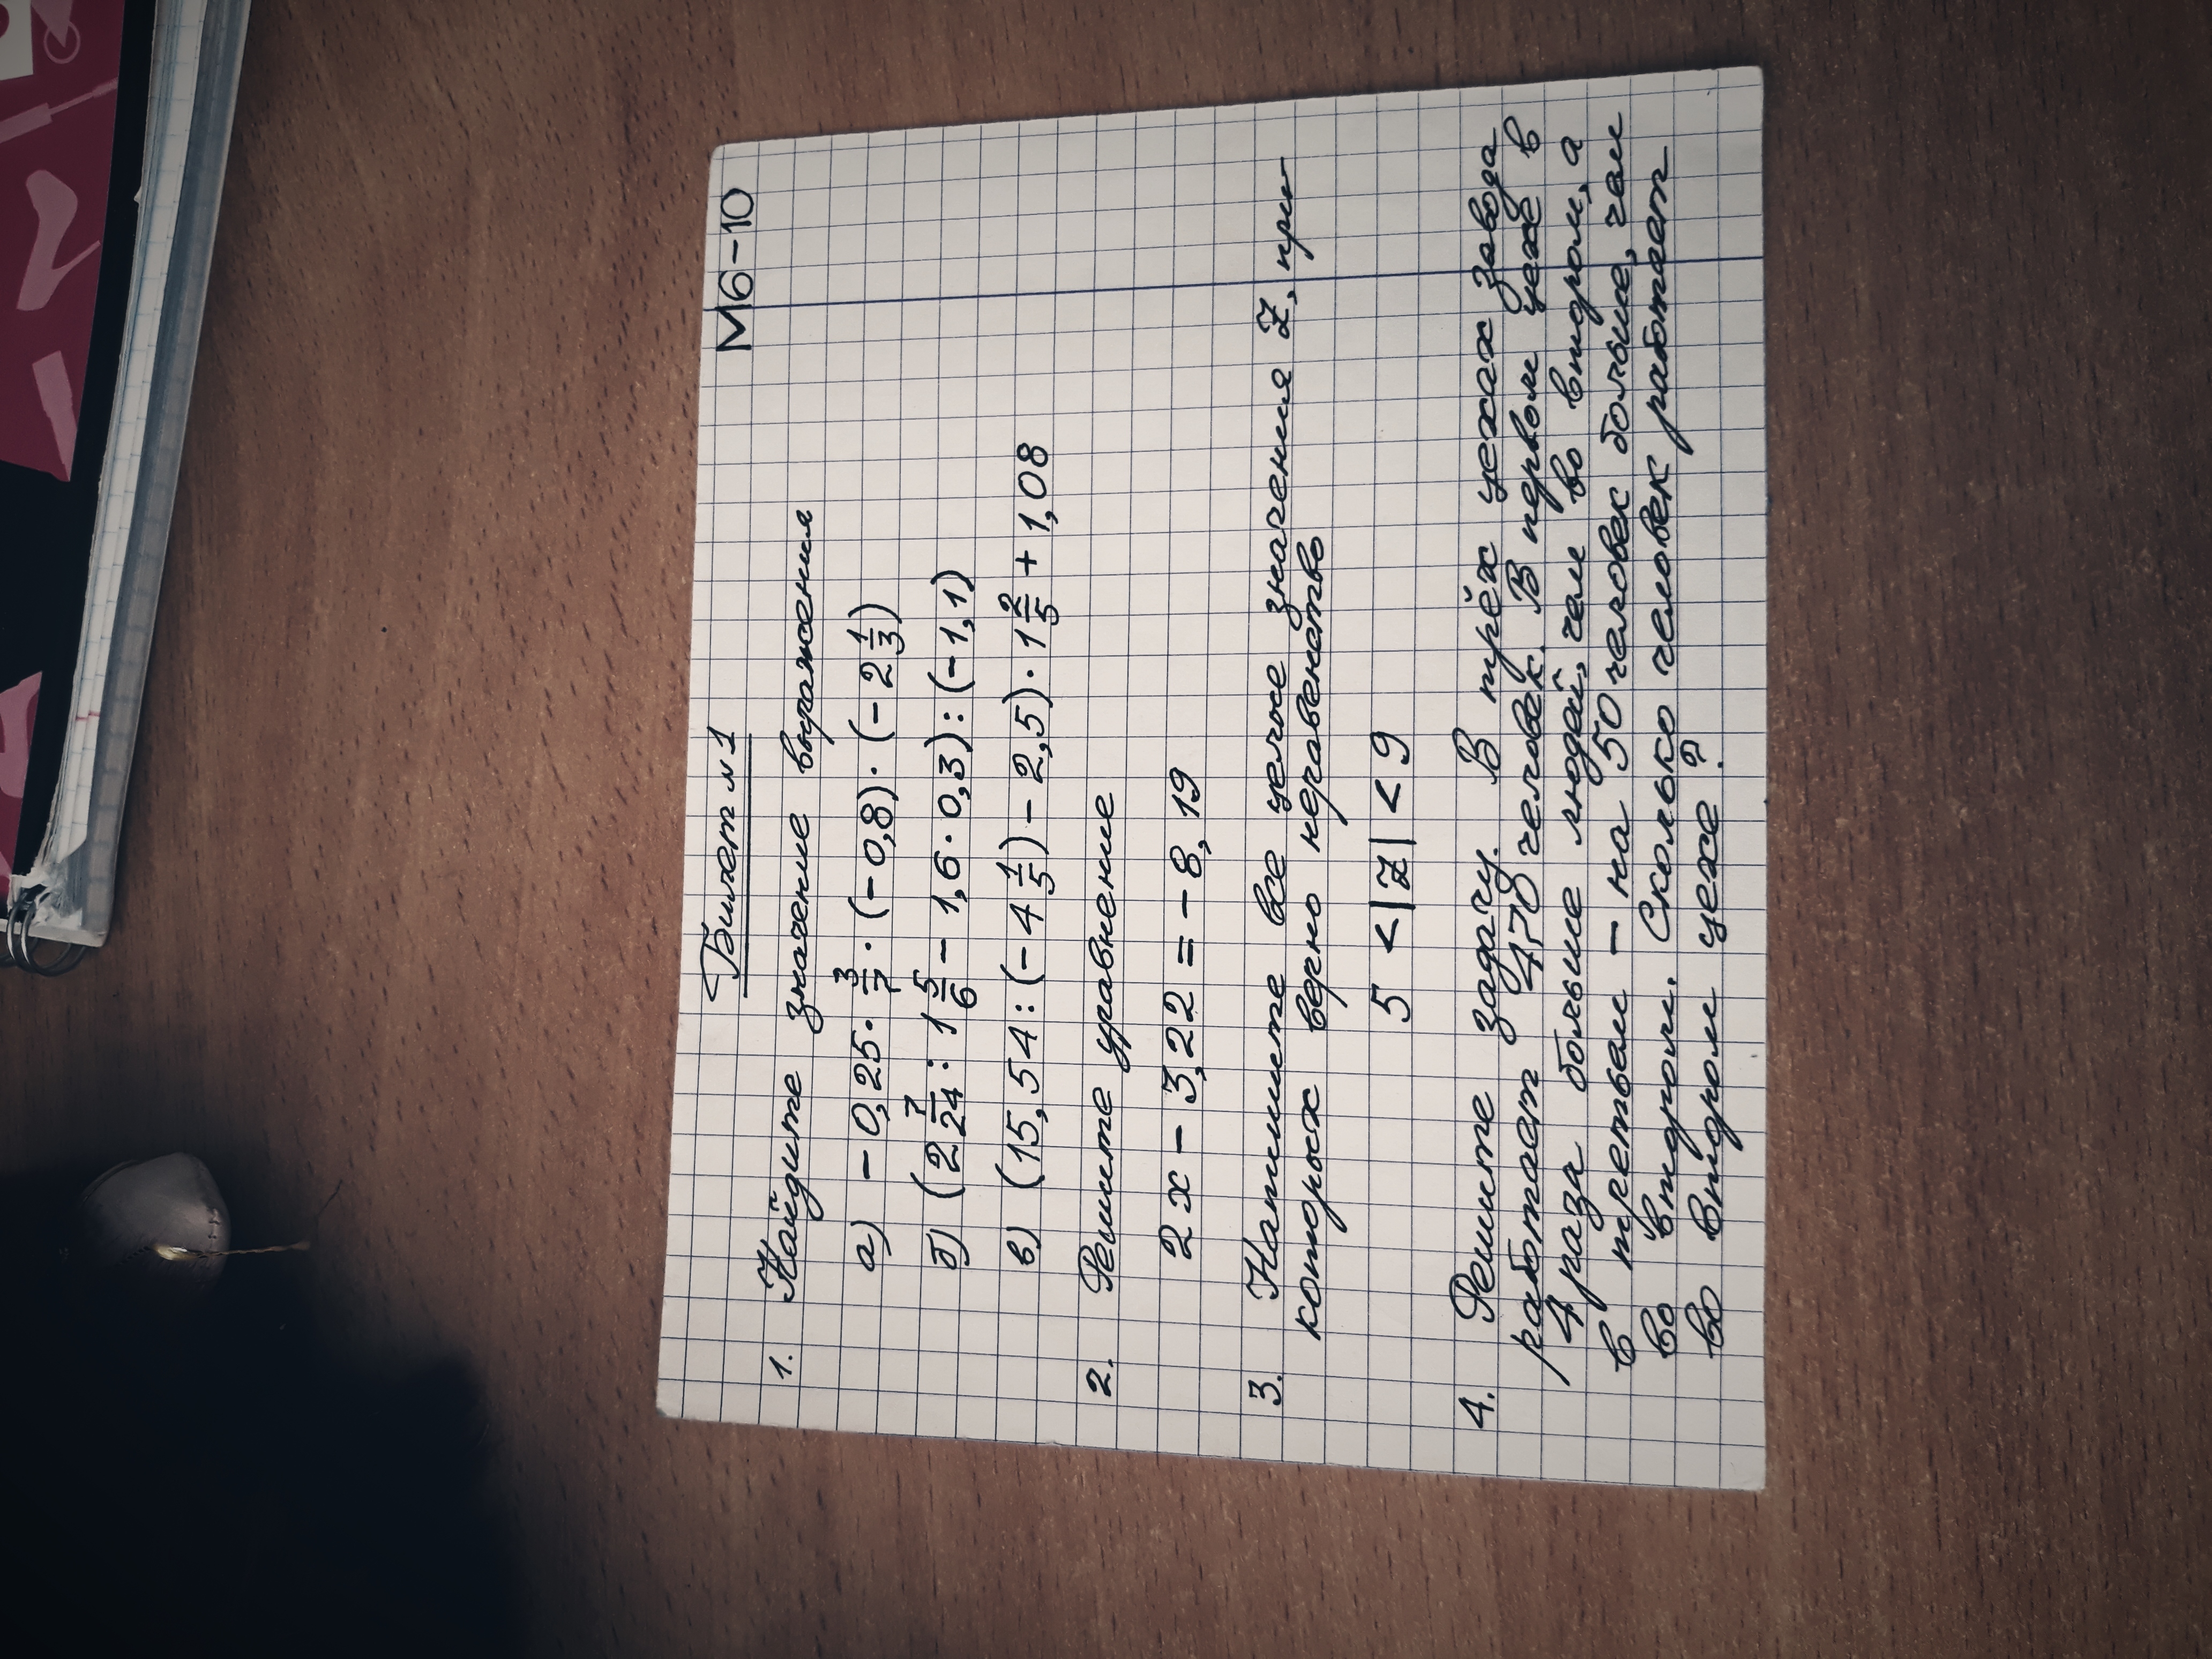 М6-10
Билет №1
1. Найдите значение выражения
а) - 0,25 · 3/7 · (- 0,8) · (- 2 1/3)
б) (2 7/24 : 1 5/6 - 1,6 · 0,3) : (- 1,1)
в) (15,54 : (- 4 1/5) - 2,5) · 1 2/5 + 1,08
2. Решите уравнение
2x - 3,22 = - 8,19
3. Напишите все целые значения Z, при
которых верно неравенство
5 < |Z| < 9
4. Решите задачу. В трёх цехах завода
работает 470 человек. В первом цехе в
4 раза больше людей, чем во втором, а
в третьем - на 50 человек больше, чем
во втором. Сколько человек работает
во втором цехе?